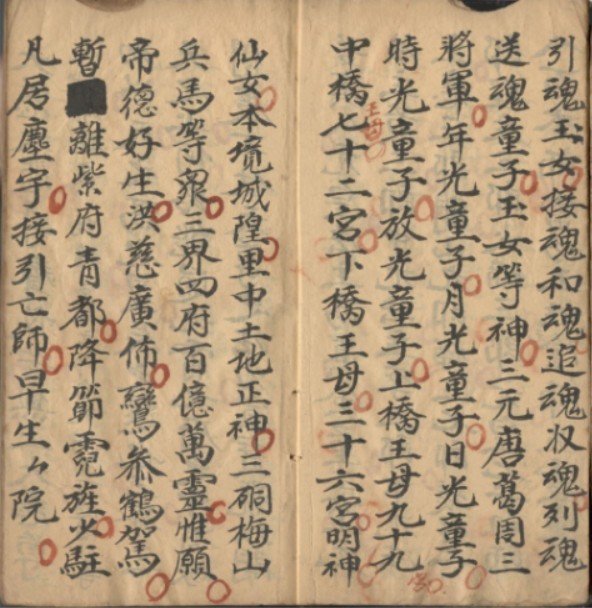 引魂玉女接魂和魂追魂收魂列魂
送魂童子玉女等神三元唐葛周三
將軍年光童子月光童子日光童子
時光童子放光童子上橋王母九十九
中橋七十二宮下橋王母三十六宮明神
王母
仙女本境城隍里中土地正神三硐梅山
兵馬等眾三界四府百億萬靈惟願
帝德好生洪慈廣佈鸞參鶴駕
暫離紫府青都降節霓旌少駐
凡居塵宇接引亡師早生々院